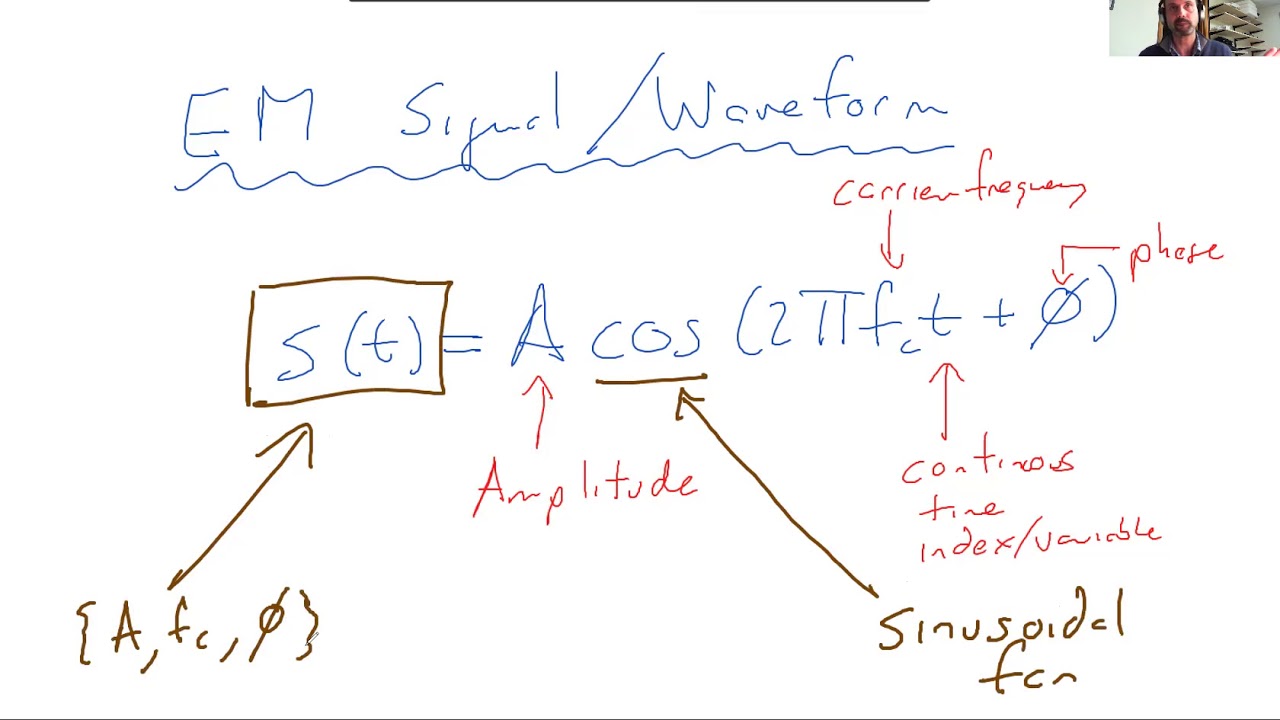 EM Signal/Waveform
carrier frequency
phase
s(t) = A cos (2πf_c t + ø)
Amplitude
continous
time
index/variable
{A, f_c, ø}
sinusoidal
fcn